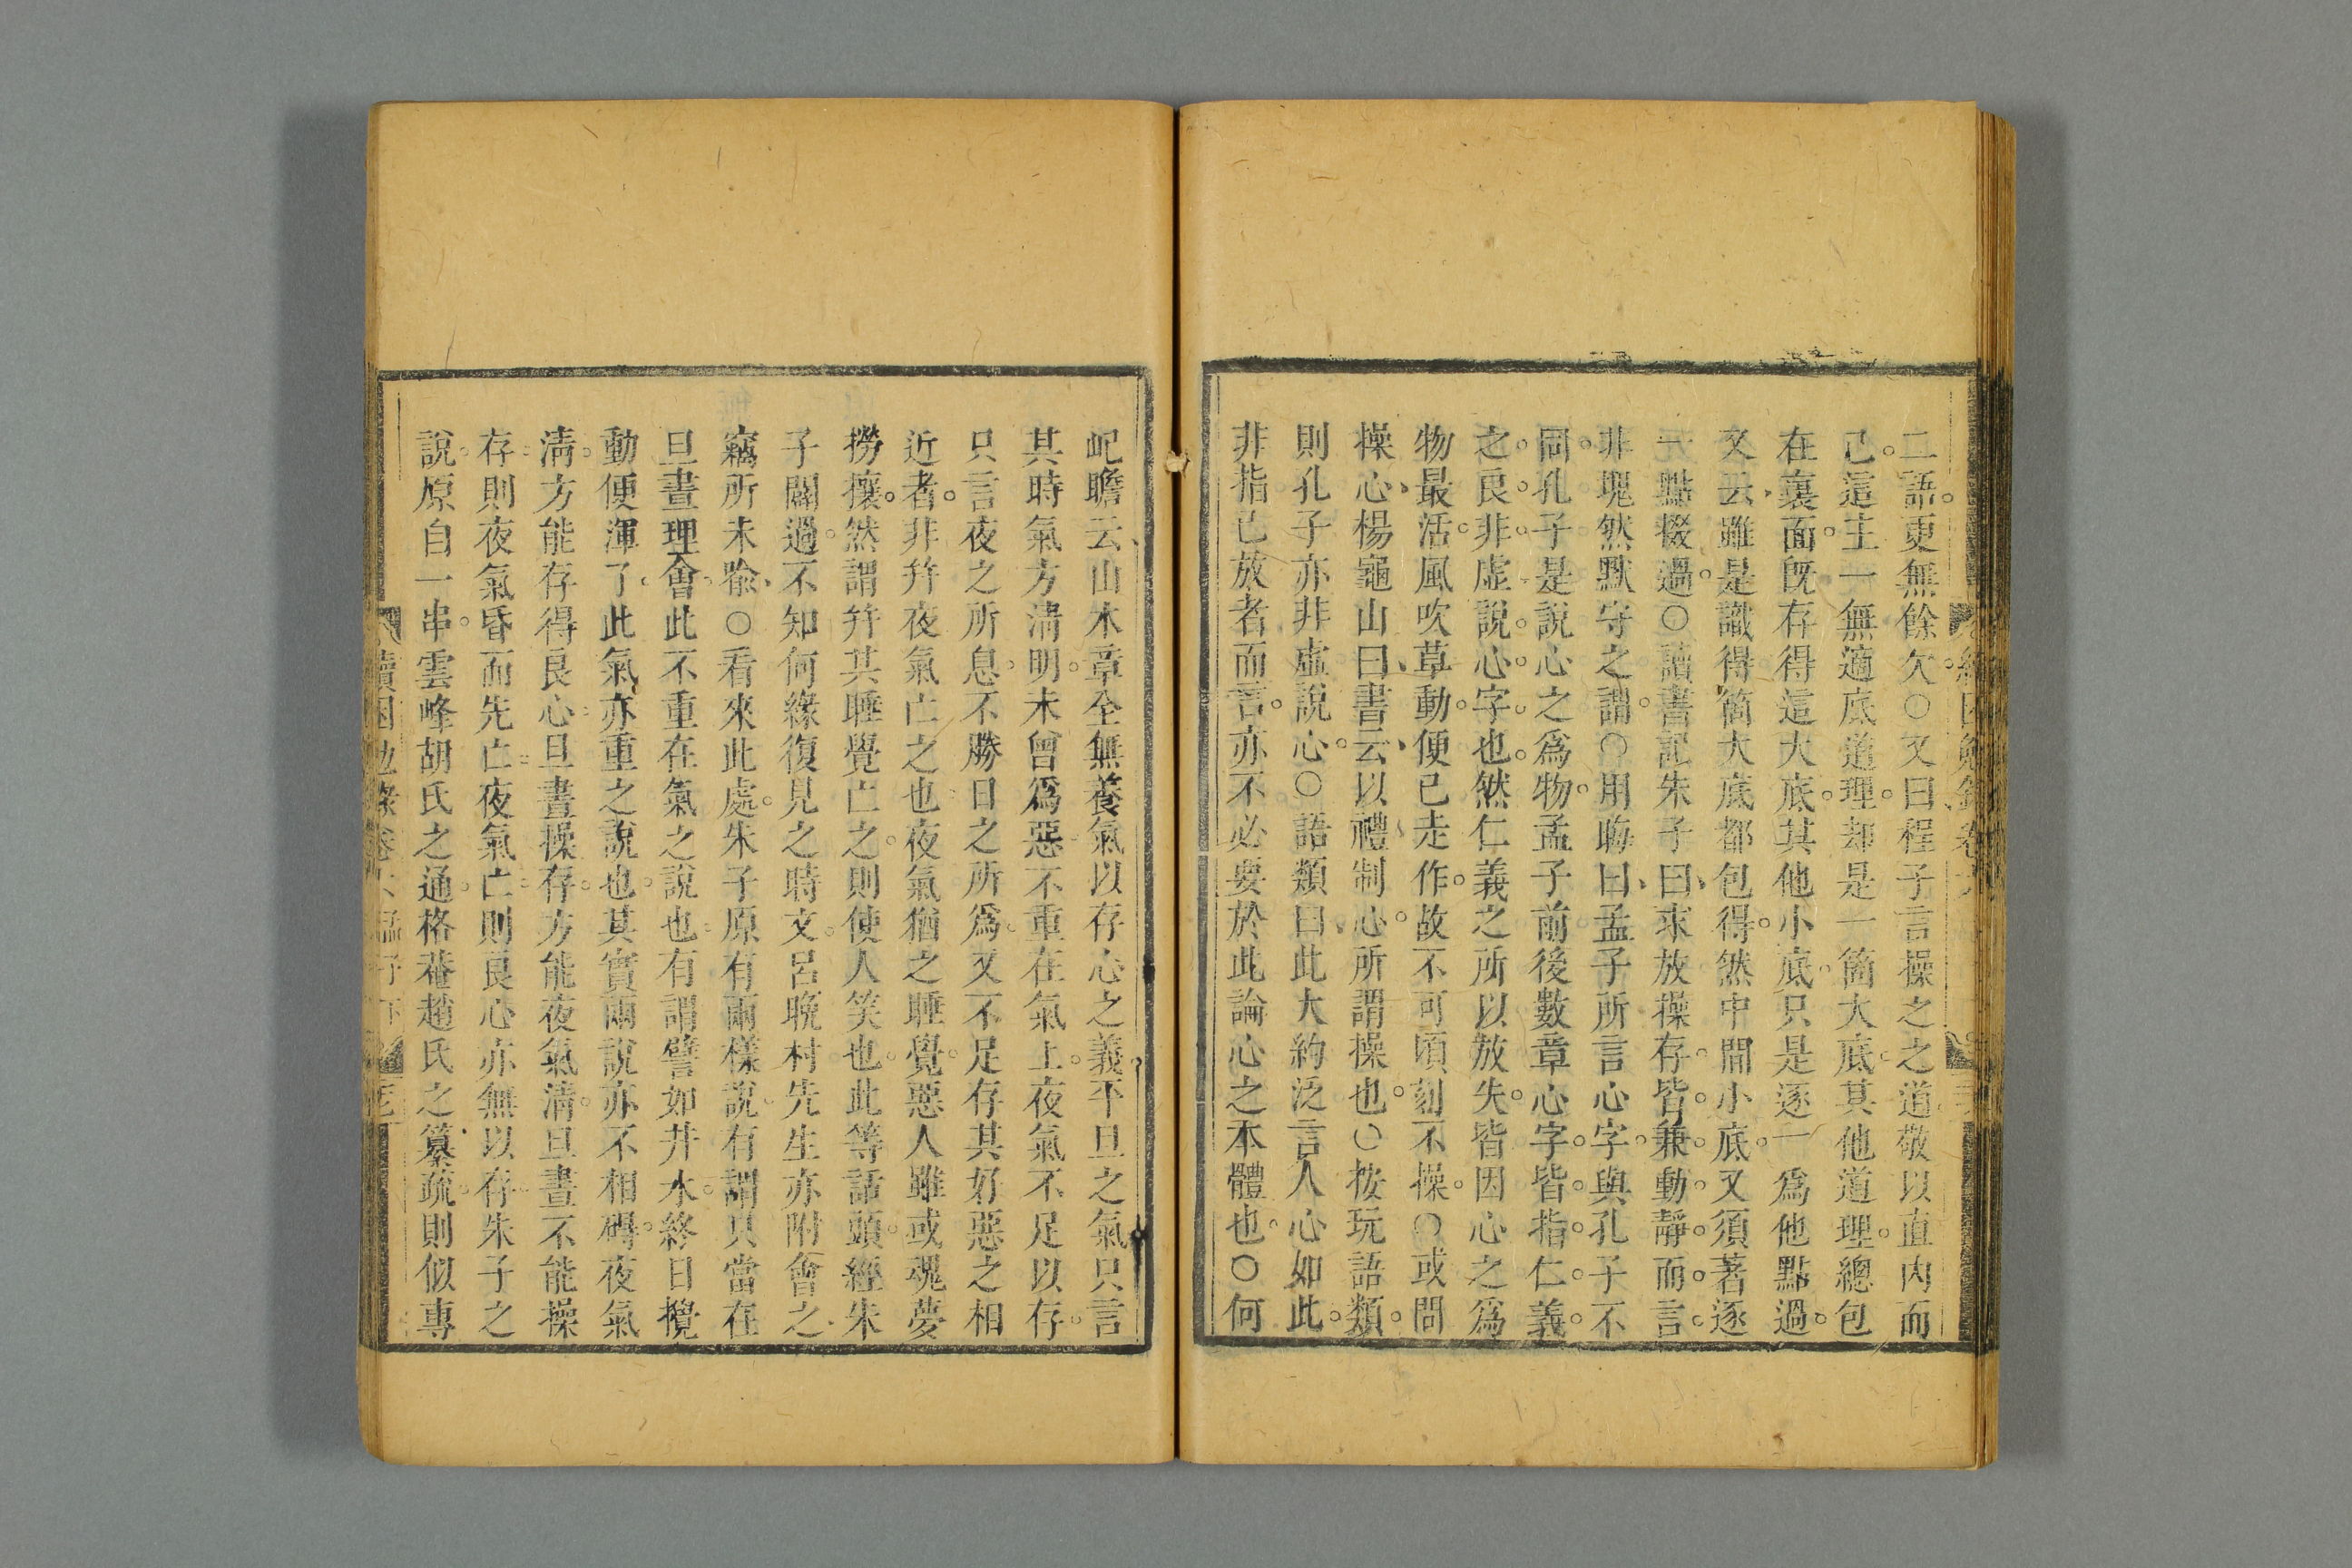 二語更無餘欠○又曰程子言操之之道敬以直內而
已這主一無適底道理却是一箇大底其他道理總包
在裏面旣存得這大底其他小底只是逐一爲他點過
又云雖是識得箇大底都包得然中間小底又須著逐
一點掇過○讀書記朱子曰求放操存皆兼動靜而言
非塊然默守之謂○用晦曰孟子所言心字與孔子不
同孔子是說心之爲物孟子前後數章心字皆指仁義
之良非虛說心字也然仁義之所以放失皆因心之爲
物最活風吹草動便已走作故不可頃刻不操○或問
操心楊龜山曰書云以禮制心所謂操也○按玩語類
則孔子亦非虛說心○語類曰此大約泛言人心如此
非指已放者而言亦不必要於此論心之本體也○何
屺瞻云山木章全無養氣以存心之義平旦之氣只言
其時氣方淸明未曾爲惡不重在氣上夜氣不足以存
只言夜之所息不勝日之所爲又不足存其好惡之相
近者非幷夜氣亡之也夜氣猶之睡覺惡人雖或魂夢
撈攘然謂幷其睡覺亡之則使人笑也此等話頭經朱
子闢過不知何緣復見之時文呂晚村先生亦附會之
竊所未喻○看來此處朱子原有兩樣說有謂只當在
旦晝理會此不重在氣之說也有謂譬如井水終日攪
動便渾了此氣亦重之說也其實兩說亦不相礙夜氣
淸方能存得良心旦晝操存方能夜氣淸旦晝不能操
存則夜氣昏而先亡夜氣亡則良心亦無以存朱子之
說原自一串雲峰胡氏之通格菴趙氏之纂疏則似專
續困勉錄卷六孟子下